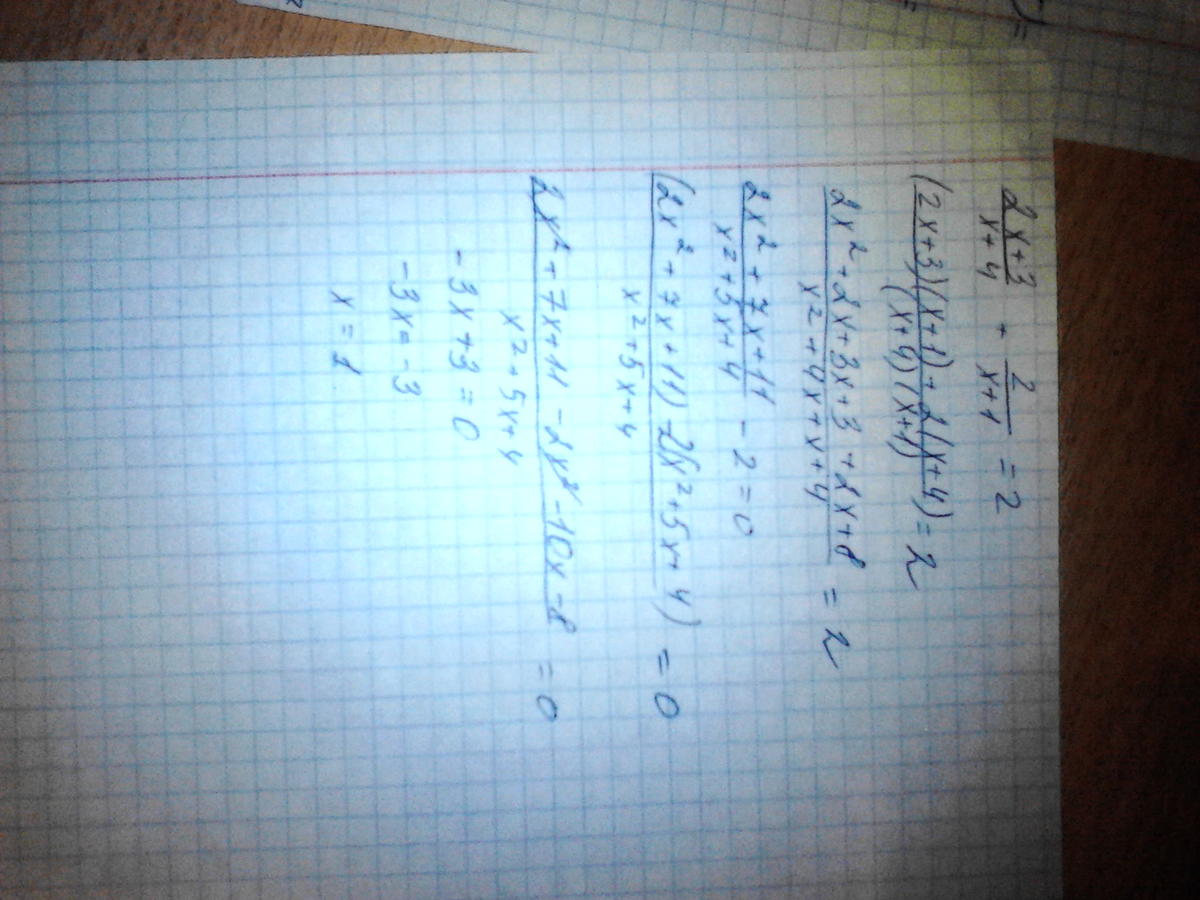 2x+3/x+4 + 2/x+1 = 2
(2x+3)(x+1)+2(x+4)/(x+4)(x+1) = 2
2x²+2x+3x+3+2x+8/x²+4x+x+4 = 2
2x²+7x+11/x²+5x+4 - 2 = 0
(2x²+7x+11)-2(x²+5x+4)/x²+5x+4 = 0
2x²+7x+11-2x²-10x-8/x²+5x+4 = 0
-3x+3=0
-3x=-3
x=1